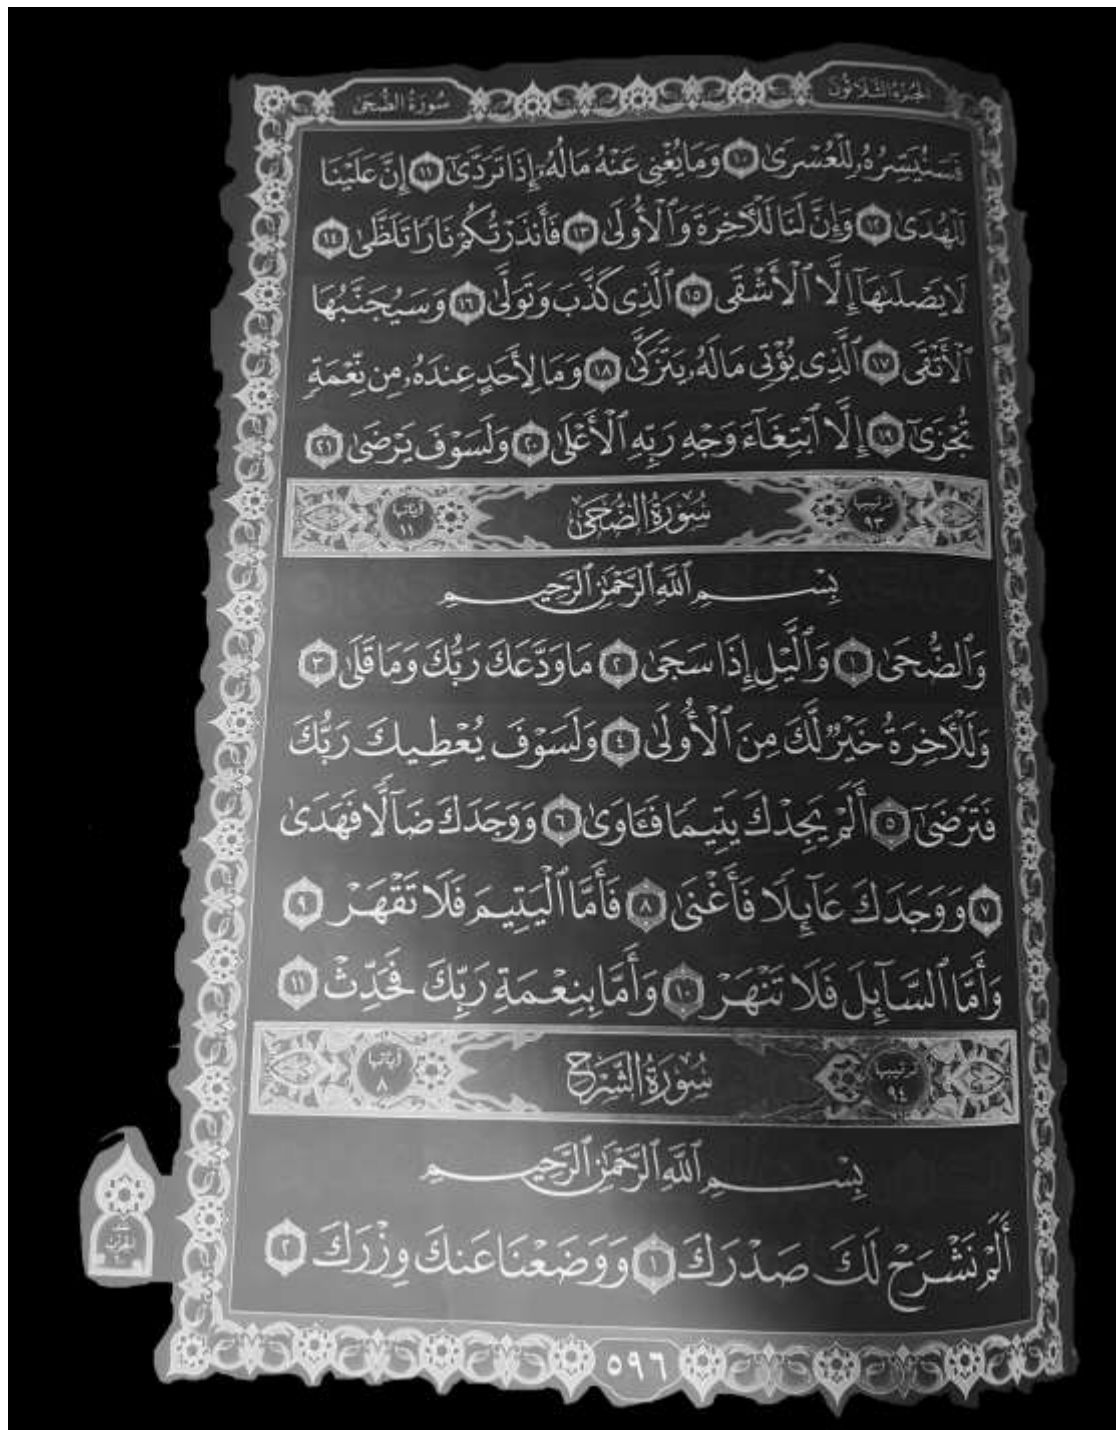 الجزء الثلاثون
سورة الضحى
فَسَنُيَسِّرُهُۥ لِلْعُسْرَىٰ ١٠ وَمَا يُغْنِى عَنْهُ مَالُهُۥٓ إِذَا تَرَدَّىٰٓ ١١ إِنَّ عَلَيْنَا
لَلْهُدَىٰ ١٢ وَإِنَّ لَنَا لَلْـَٔاخِرَةَ وَٱلْأُولَىٰ ١٣ فَأَنذَرْتُكُمْ نَارًا تَلَظَّىٰ ١٤
لَا يَصْلَىٰهَآ إِلَّا ٱلْأَشْقَى ١٥ ٱلَّذِى كَذَّبَ وَتَوَلَّىٰ ١٦ وَسَيُجَنَّبُهَا
ٱلْأَتْقَى ١٧ ٱلَّذِى يُؤْتِى مَالَهُۥ يَتَزَكَّىٰ ١٨ وَمَا لِأَحَدٍ عِندَهُۥ مِن نِّعْمَةٍ
تُجْزَىٰٓ ١٩ إِلَّا ٱبْتِغَآءَ وَجْهِ رَبِّهِ ٱلْأَعْلَىٰ ٢٠ وَلَسَوْفَ يَرْضَىٰ ٢١
ترتيبها ٩٣ سُورَةُ الضُّحَىٰ آياتها ١١
بِسْمِ ٱللَّهِ ٱلرَّحْمَٰنِ ٱلرَّحِيمِ
وَٱلضُّحَىٰ ١ وَٱلَّيْلِ إِذَا سَجَىٰ ٢ مَا وَدَّعَكَ رَبُّكَ وَمَا قَلَىٰ ٣
وَلَلْـَٔاخِرَةُ خَيْرٌ لَّكَ مِنَ ٱلْأُولَىٰ ٤ وَلَسَوْفَ يُعْطِيكَ رَبُّكَ
فَتَرْضَىٰٓ ٥ أَلَمْ يَجِدْكَ يَتِيمًا فَـَٔاوَىٰ ٦ وَوَجَدَكَ ضَآلًّا فَهَدَىٰ
٧ وَوَجَدَكَ عَآئِلًا فَأَغْنَىٰ ٨ فَأَمَّا ٱلْيَتِيمَ فَلَا تَقْهَرْ ٩
وَأَمَّا ٱلسَّآئِلَ فَلَا تَنْهَرْ ١٠ وَأَمَّا بِنِعْمَةِ رَبِّكَ فَحَدِّثْ ١١
ترتيبها ٩٤ سُورَةُ الشَّرْحِ آياتها ٨
بِسْمِ ٱللَّهِ ٱلرَّحْمَٰنِ ٱلرَّحِيمِ
أَلَمْ نَشْرَحْ لَكَ صَدْرَكَ ١ وَوَضَعْنَا عَنكَ وِزْرَكَ ٢
٥٩٦